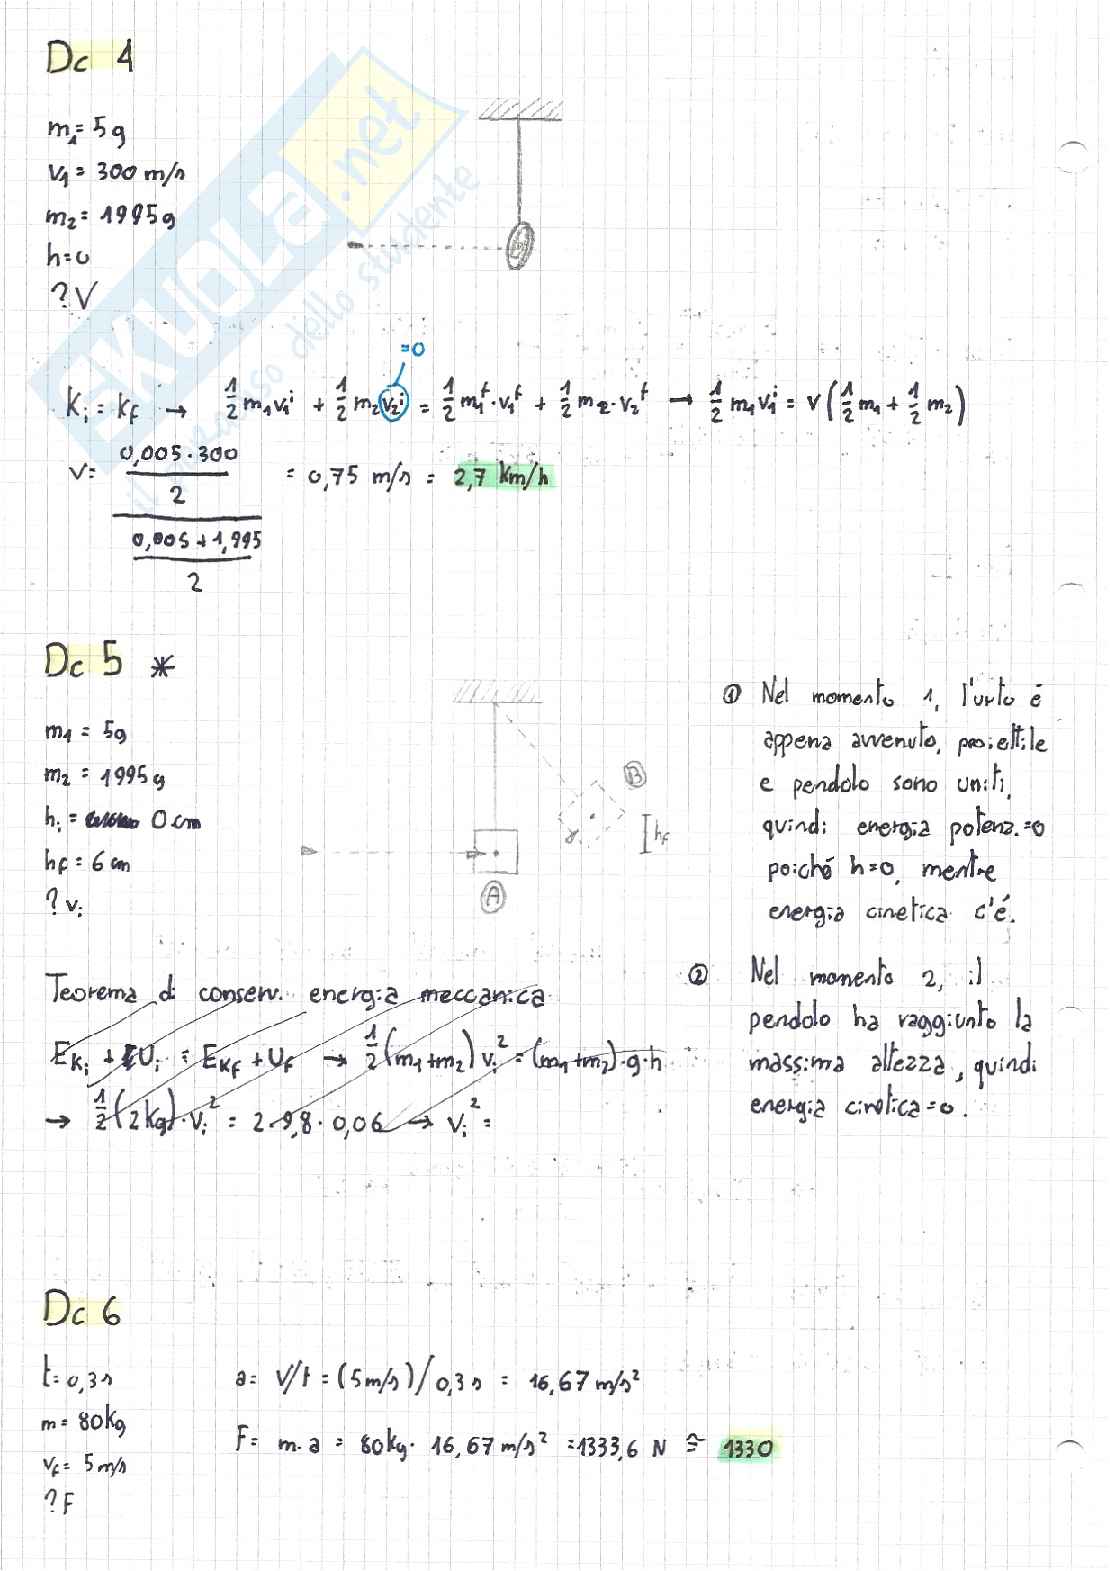 Dc 4
m₁= 5g
v₁= 300 m/s
m₂= 1995g
h=0
?V
SKUOLA.net
il paradiso dello studente
=0
Kᵢ = K_f → 1/2 m₁v₁ⁱ + 1/2 m₂v₂ⁱ = 1/2 m₁ᶠ·v₁ᶠ + 1/2 m₂·v₂ᶠ → 1/2 m₁v₁ⁱ = V(1/2 m₁ + 1/2 m₂)
V= (0,005·300 / 2) / (0,005+1,995 / 2) = 0,75 m/s = 2,7 km/h
Dc 5 *
m₁ = 5g
m₂ = 1995g
hᵢ = 0cm
h_f = 6cm
? vᵢ
A
B
h_f
① Nel momento 1, l'urto è
appena avvenuto, proiettile
e pendolo sono uniti,
quindi energia potenz.=0
poiché h=0, mentre
energia cinetica c'é.
② Nel momento 2, il
pendolo ha raggiunto la
massima altezza, quindi
energia cinetica=0.
Teorema di conserv. energia meccanica
E_Kᵢ + Uᵢ = E_Kf + U_f → 1/2 (m₁+m₂) vᵢ² = (m₁+m₂)·g·h
→ 1/2 (2kg)·vᵢ² = 2·9,8·0,06 → vᵢ² =
Dc 6
t=0,3s
m=80kg
v_f= 5m/s
?F
a= V/t = (5m/s)/0,3s = 16,67 m/s²
F= m·a = 80kg· 16,67 m/s² =1333,6 N ≅ 1330